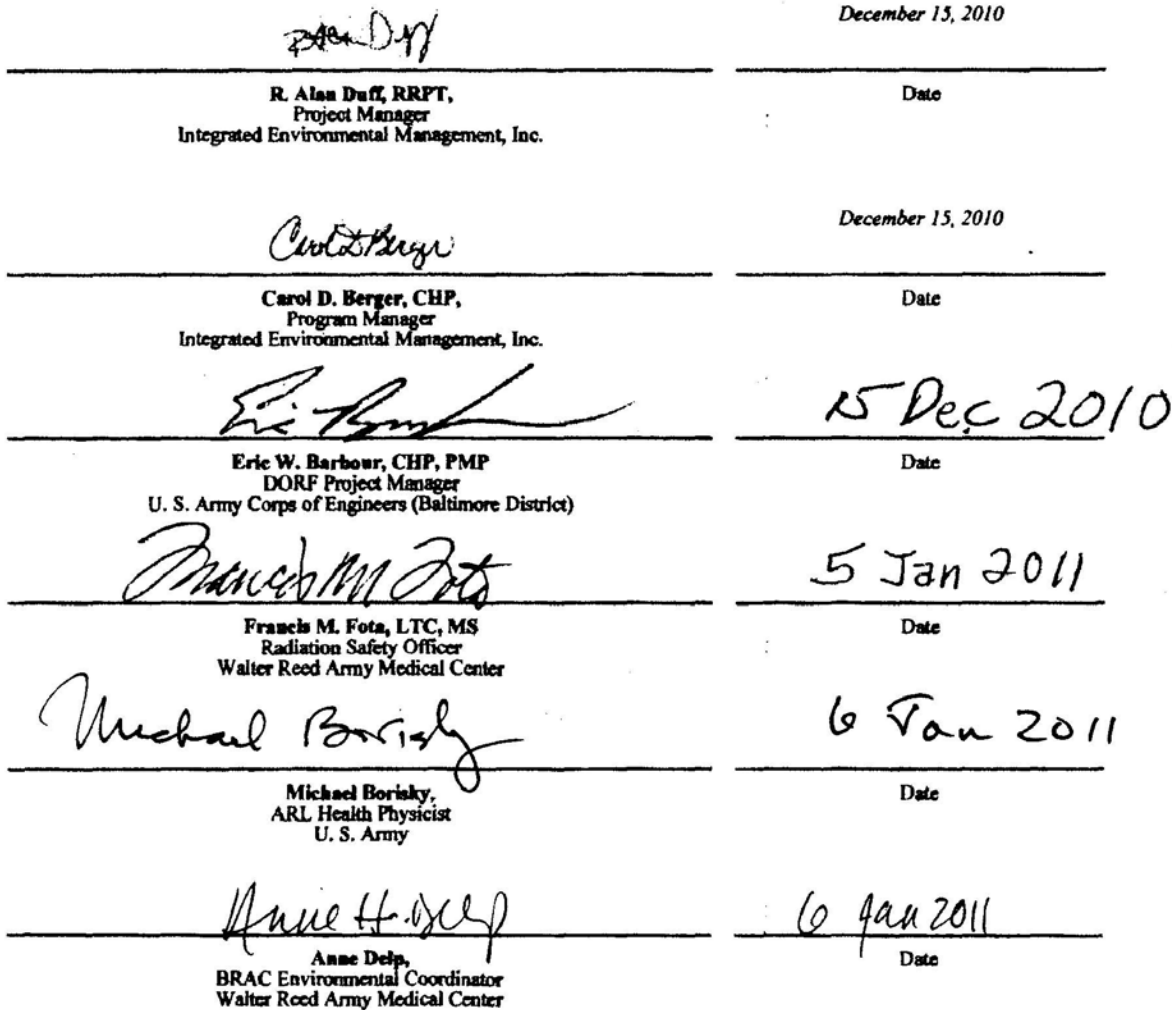 December 15, 2010
R. Alan Duff, RRPT,
Date
Project Manager
Integrated Environmental Management, Inc.
Carol D Berger
December 15, 2010
Carol D. Berger, CHP,
Date
Program Manager
Integrated Environmental Management, Inc.
15 Dec 2010
Eric W. Barbour, CHP, PMP
Date
DORF Project Manager
U. S. Army Corps of Engineers (Baltimore District)
Francis M Fota
5 Jan 2011
Francis M. Fota, LTC, MS
Date
Radiation Safety Officer
Walter Reed Army Medical Center
Michael Borisky
6 Jan 2011
Michael Borisky,
Date
ARL Health Physicist
U. S. Army
Anne H. Delp
6 Jan 2011
Anne Delp,
Date
BRAC Environmental Coordinator
Walter Reed Army Medical Center